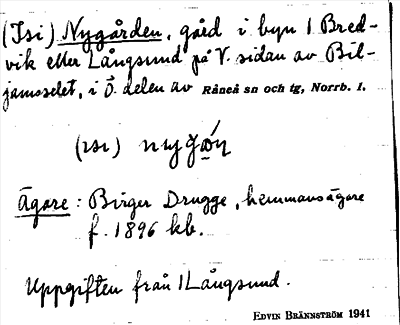 (Isi) Nygården, gård i byn 1 Bred-
vik eller Långsund på V. sidan av Bil-
jamsselet, i Ö. delen av Råneå sn och tg, Norrb. l.
(ɪsɪ)
Ägare: Birger Drugge, hemmansägare
f. 1896 kb.
Uppgiften från 1 Långsund.
EDVIN BRÄNNSTRÖM 1941